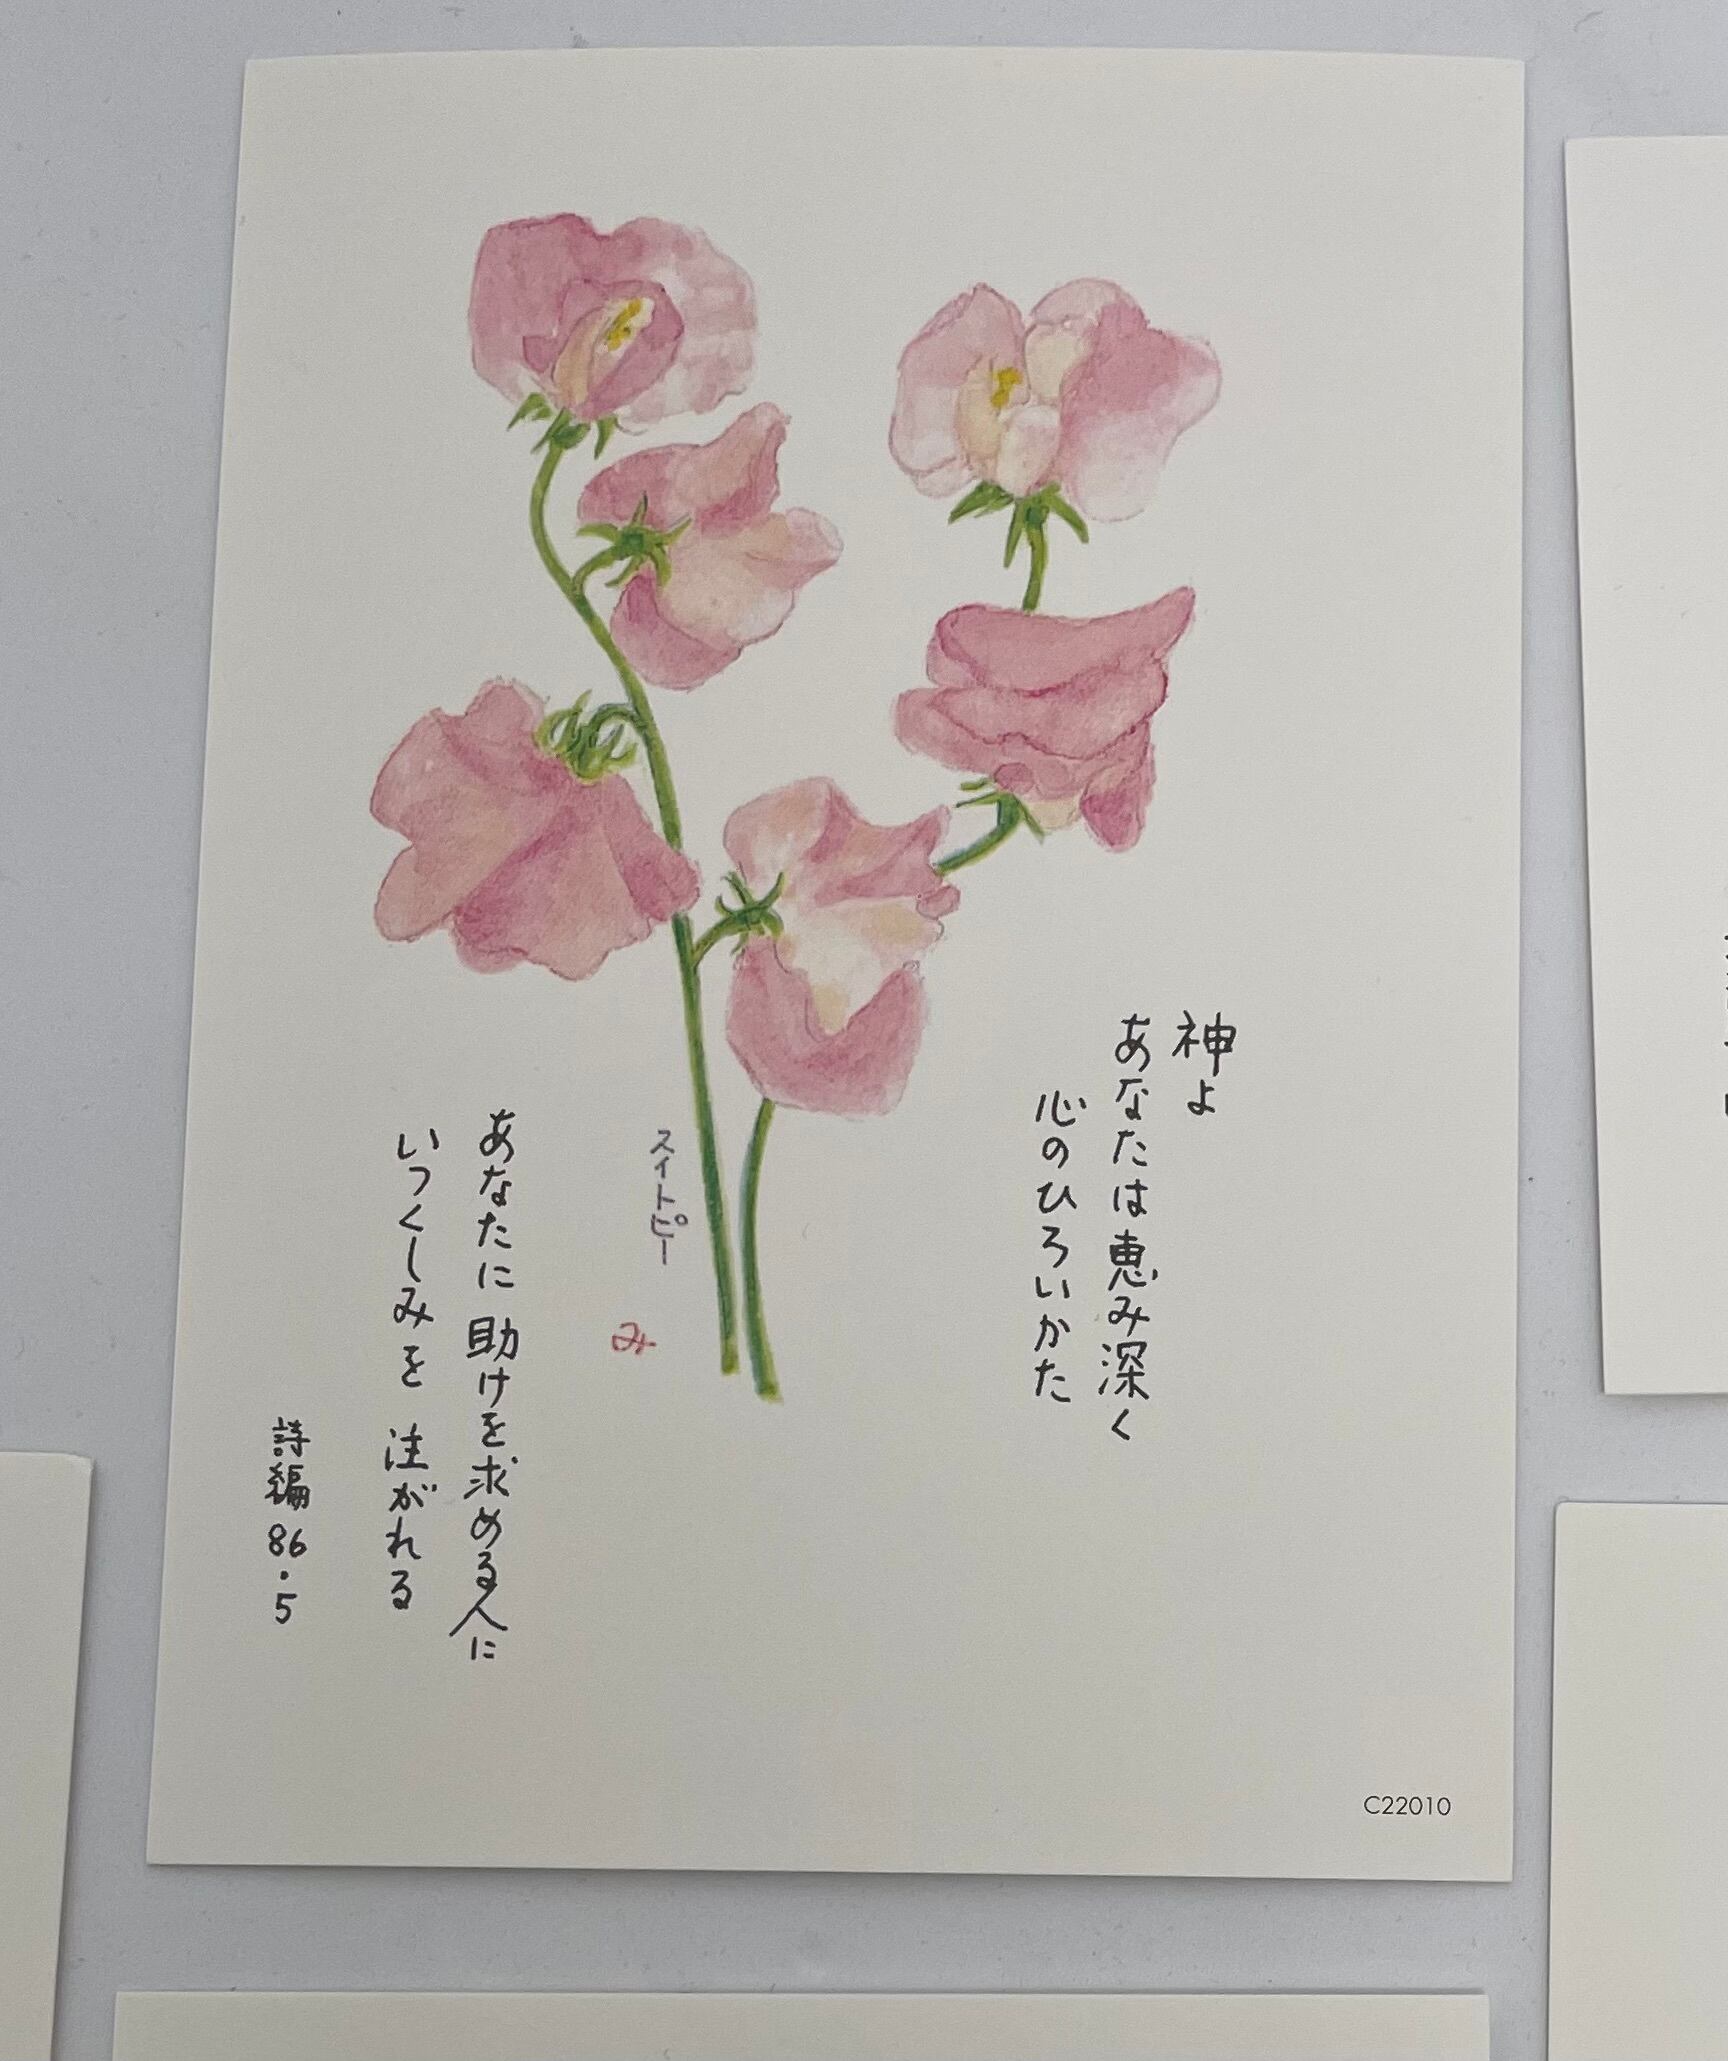 神よ
あなたは恵み深く
心のひろいかた
スイトピー
み
あなたに助けを求める人に
いつくしみを 注がれる
詩編86・5
C22010